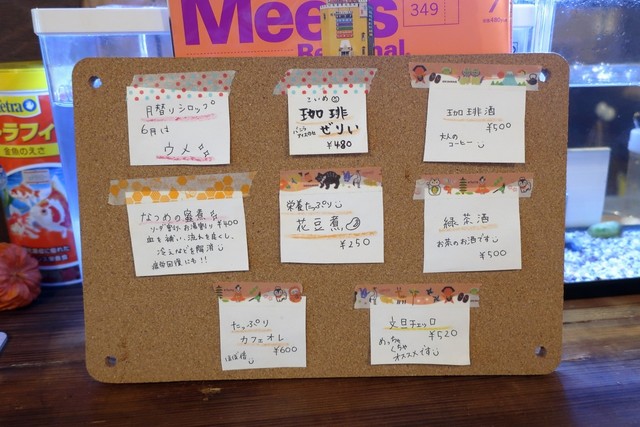 Meets
Regional.
349
7
etra
ラフィ
金魚のえさ
月替りシロップ
6月は
ウメ
こいめ
珈琲
ぜりい
¥480
珈琲酒
¥500
大人の
コーヒー
なつめの蜜煮
ソーダ割り、お湯割り ¥400
血を補い、流れを良くし、
冷えなどを解消
疲労回復にも!!
栄養たっぷり
花豆煮
¥250
緑茶酒
お茶のお酒です
¥500
たっぷり
カフェオレ
ほぼ倍
¥600
文旦チェッロ
¥520
めっちゃ
くちゃ
オススメです